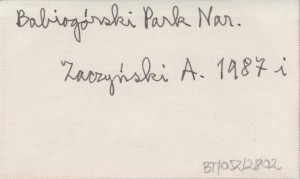 Babiogórski Park Nar.
Zaczyński A. 1987 i
BT/052/2802